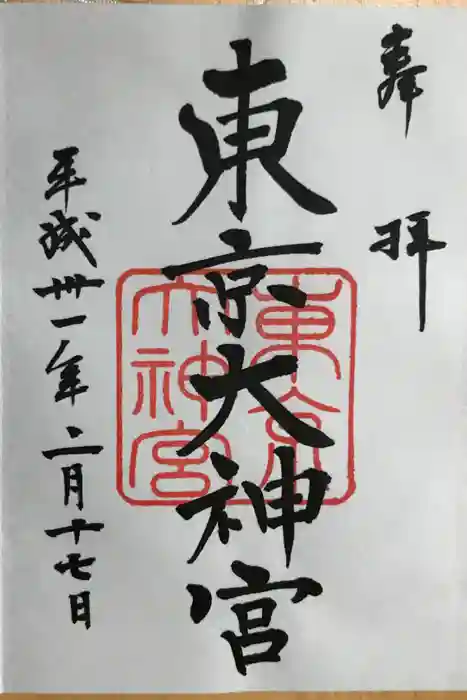 奉拝
東京大神宮
東京大神宮
平成卅一年二月十七日